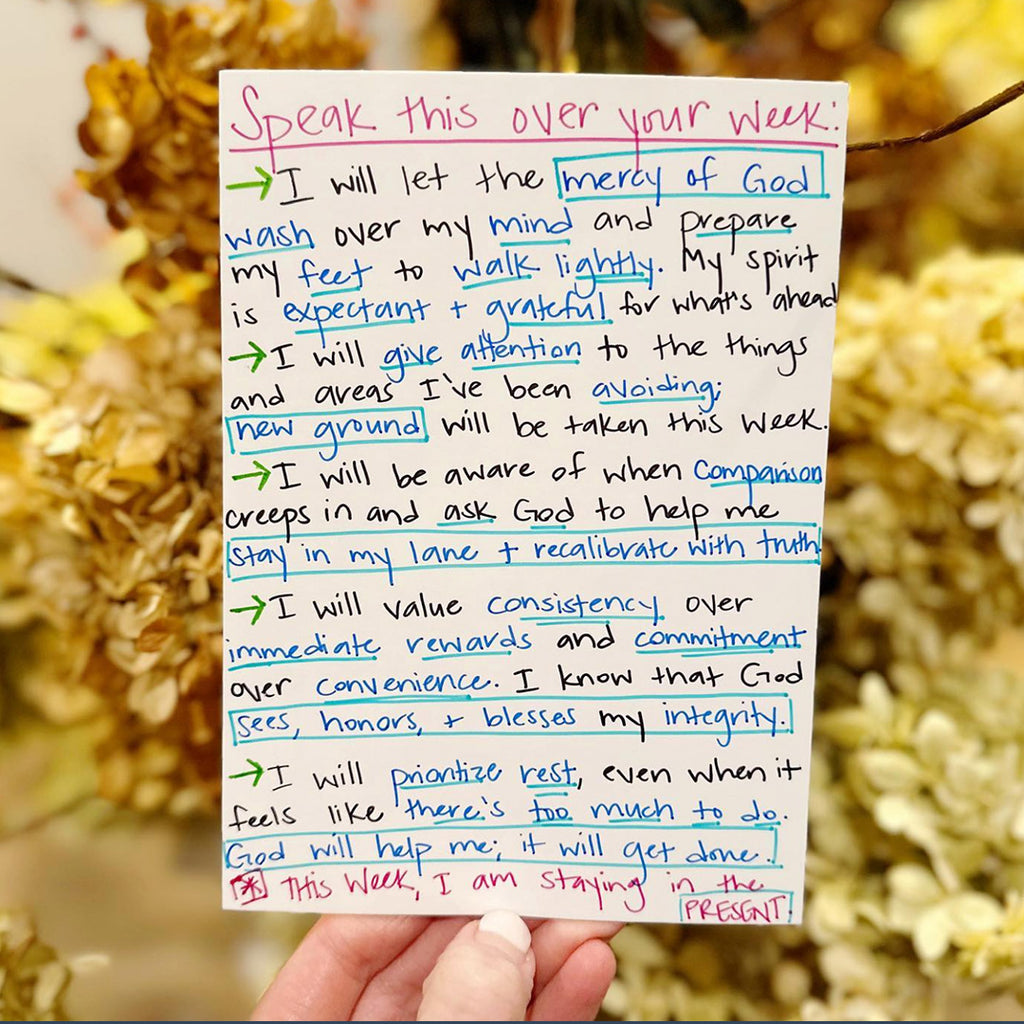 Speak this over your week:
→ I will let the mercy of God
wash over my mind and prepare
my feet to walk lightly. My spirit
is expectant + grateful for what's ahead
→ I will give attention to the things
and areas I've been avoiding;
new ground will be taken this week.
→ I will be aware of when comparison
creeps in and ask God to help me
stay in my lane + recalibrate with truth.
→ I will value consistency over
immediate rewards and commitment
over convenience. I know that God
sees, honors, + blesses my integrity.
→ I will prioritize rest, even when it
feels like there's too much to do.
God will help me; it will get done.
* THis Week, I am staying in the
PRESENT.